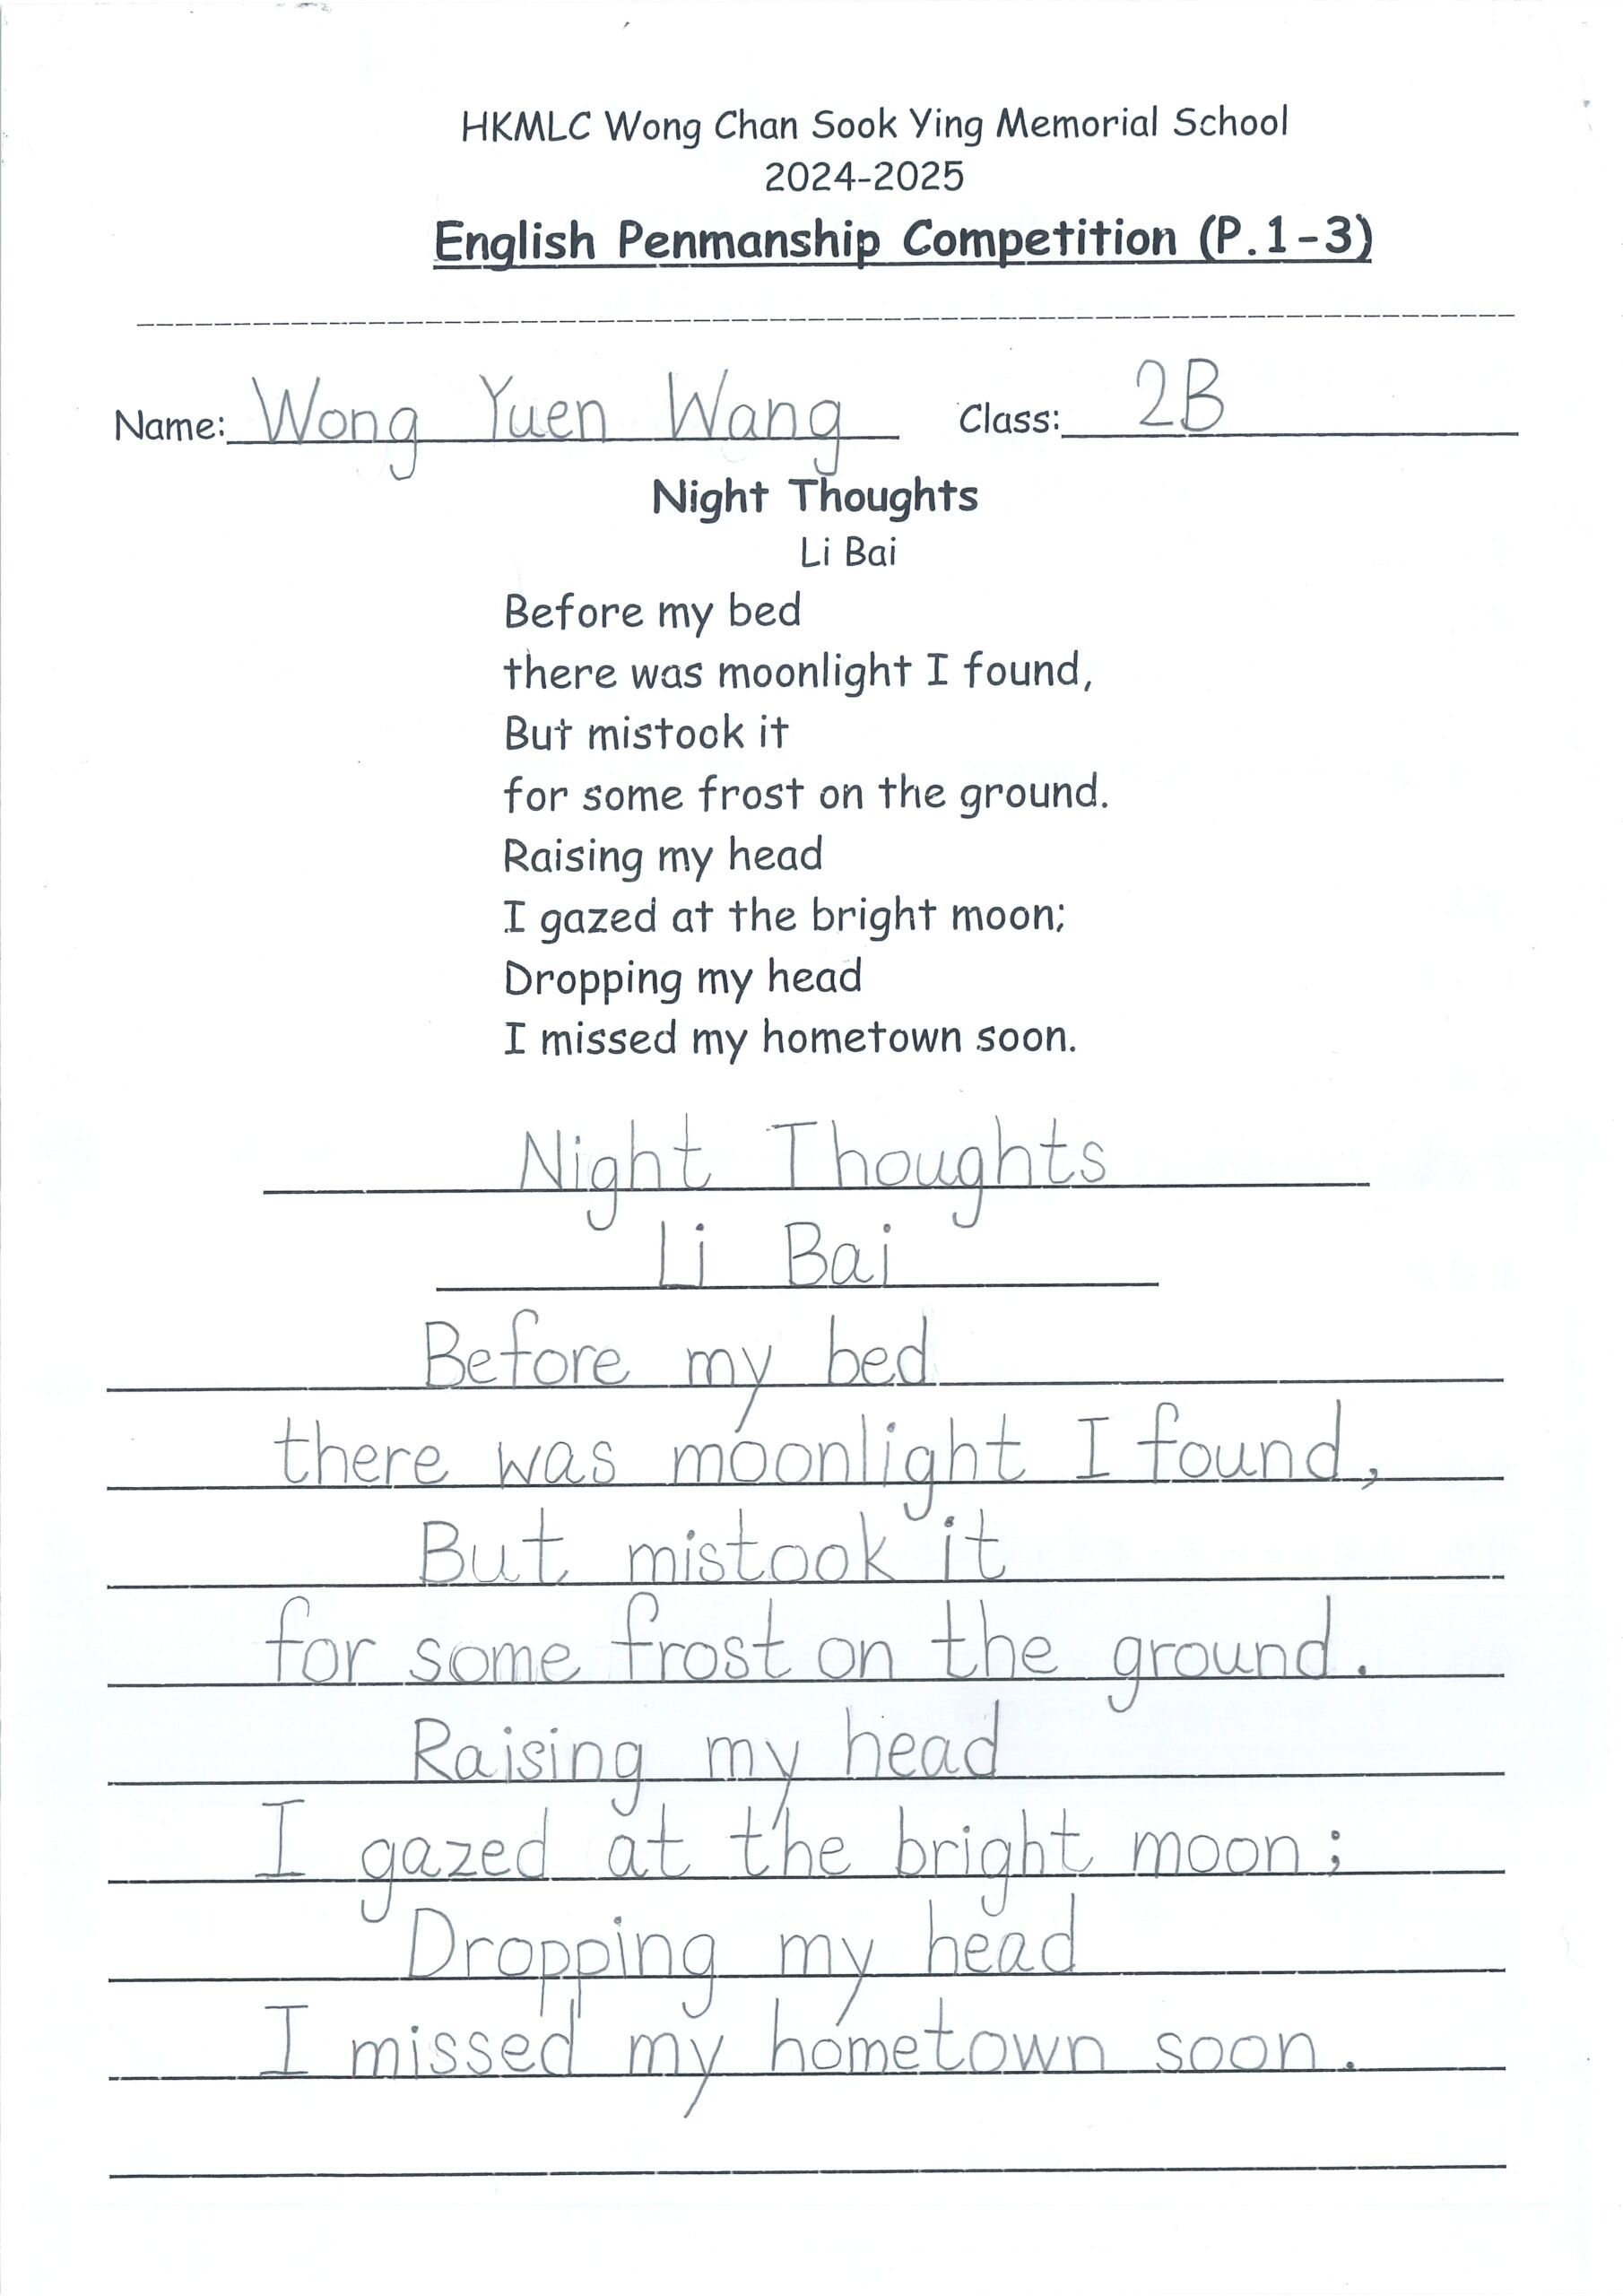 HKMLC Wong Chan Sook Ying Memorial School
2024-2025
English Penmanship Competition (P.1-3)
Name: Wong Yuen Wang Class: 2B
Night Thoughts
Li Bai
Before my bed
there was moonlight I found,
But mistook it
for some frost on the ground.
Raising my head
I gazed at the bright moon;
Dropping my head
I missed my hometown soon.
Night Thoughts
Li Bai
Before my bed
there was moonlight I found,
But mistook it
for some frost on the ground.
Raising my head
I gazed at the bright moon;
Dropping my head
I missed my hometown soon.